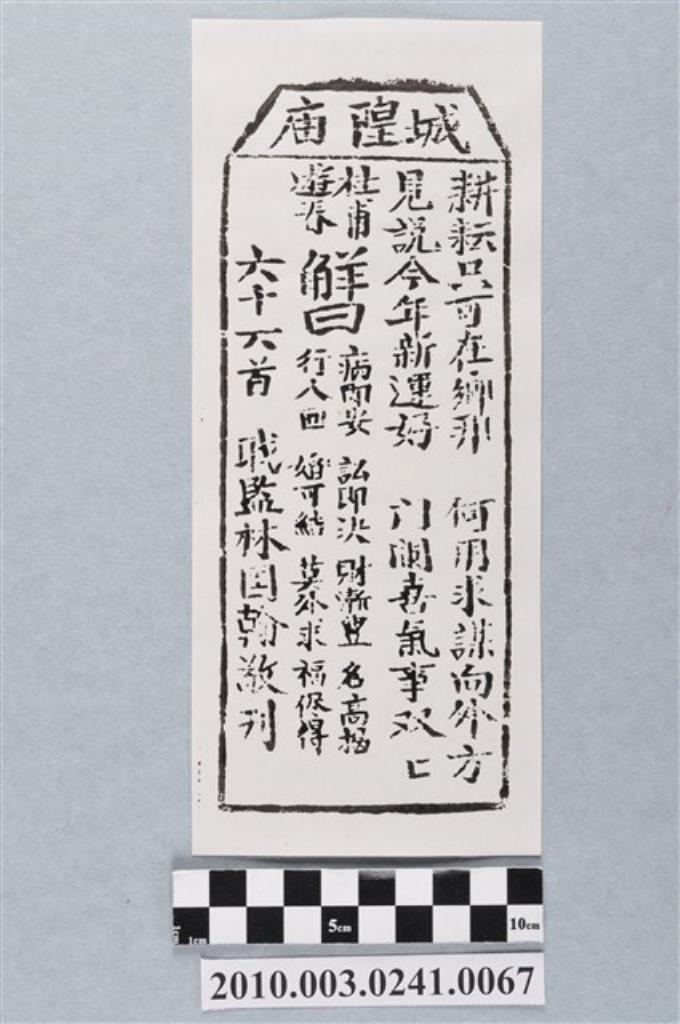 城隍庙
耕耘只可在鄉邦　何用求謀向外方
見説今年新運好　门闌喜氣事双匕
杜甫遊春
解曰
病即安　訟即决　財漸豐　名高掦
行人回　婚可結　莫外求　福佀得
六十六首　職監林国翰敬刋
5cm
10cm
1cm
2010.003.0241.0067